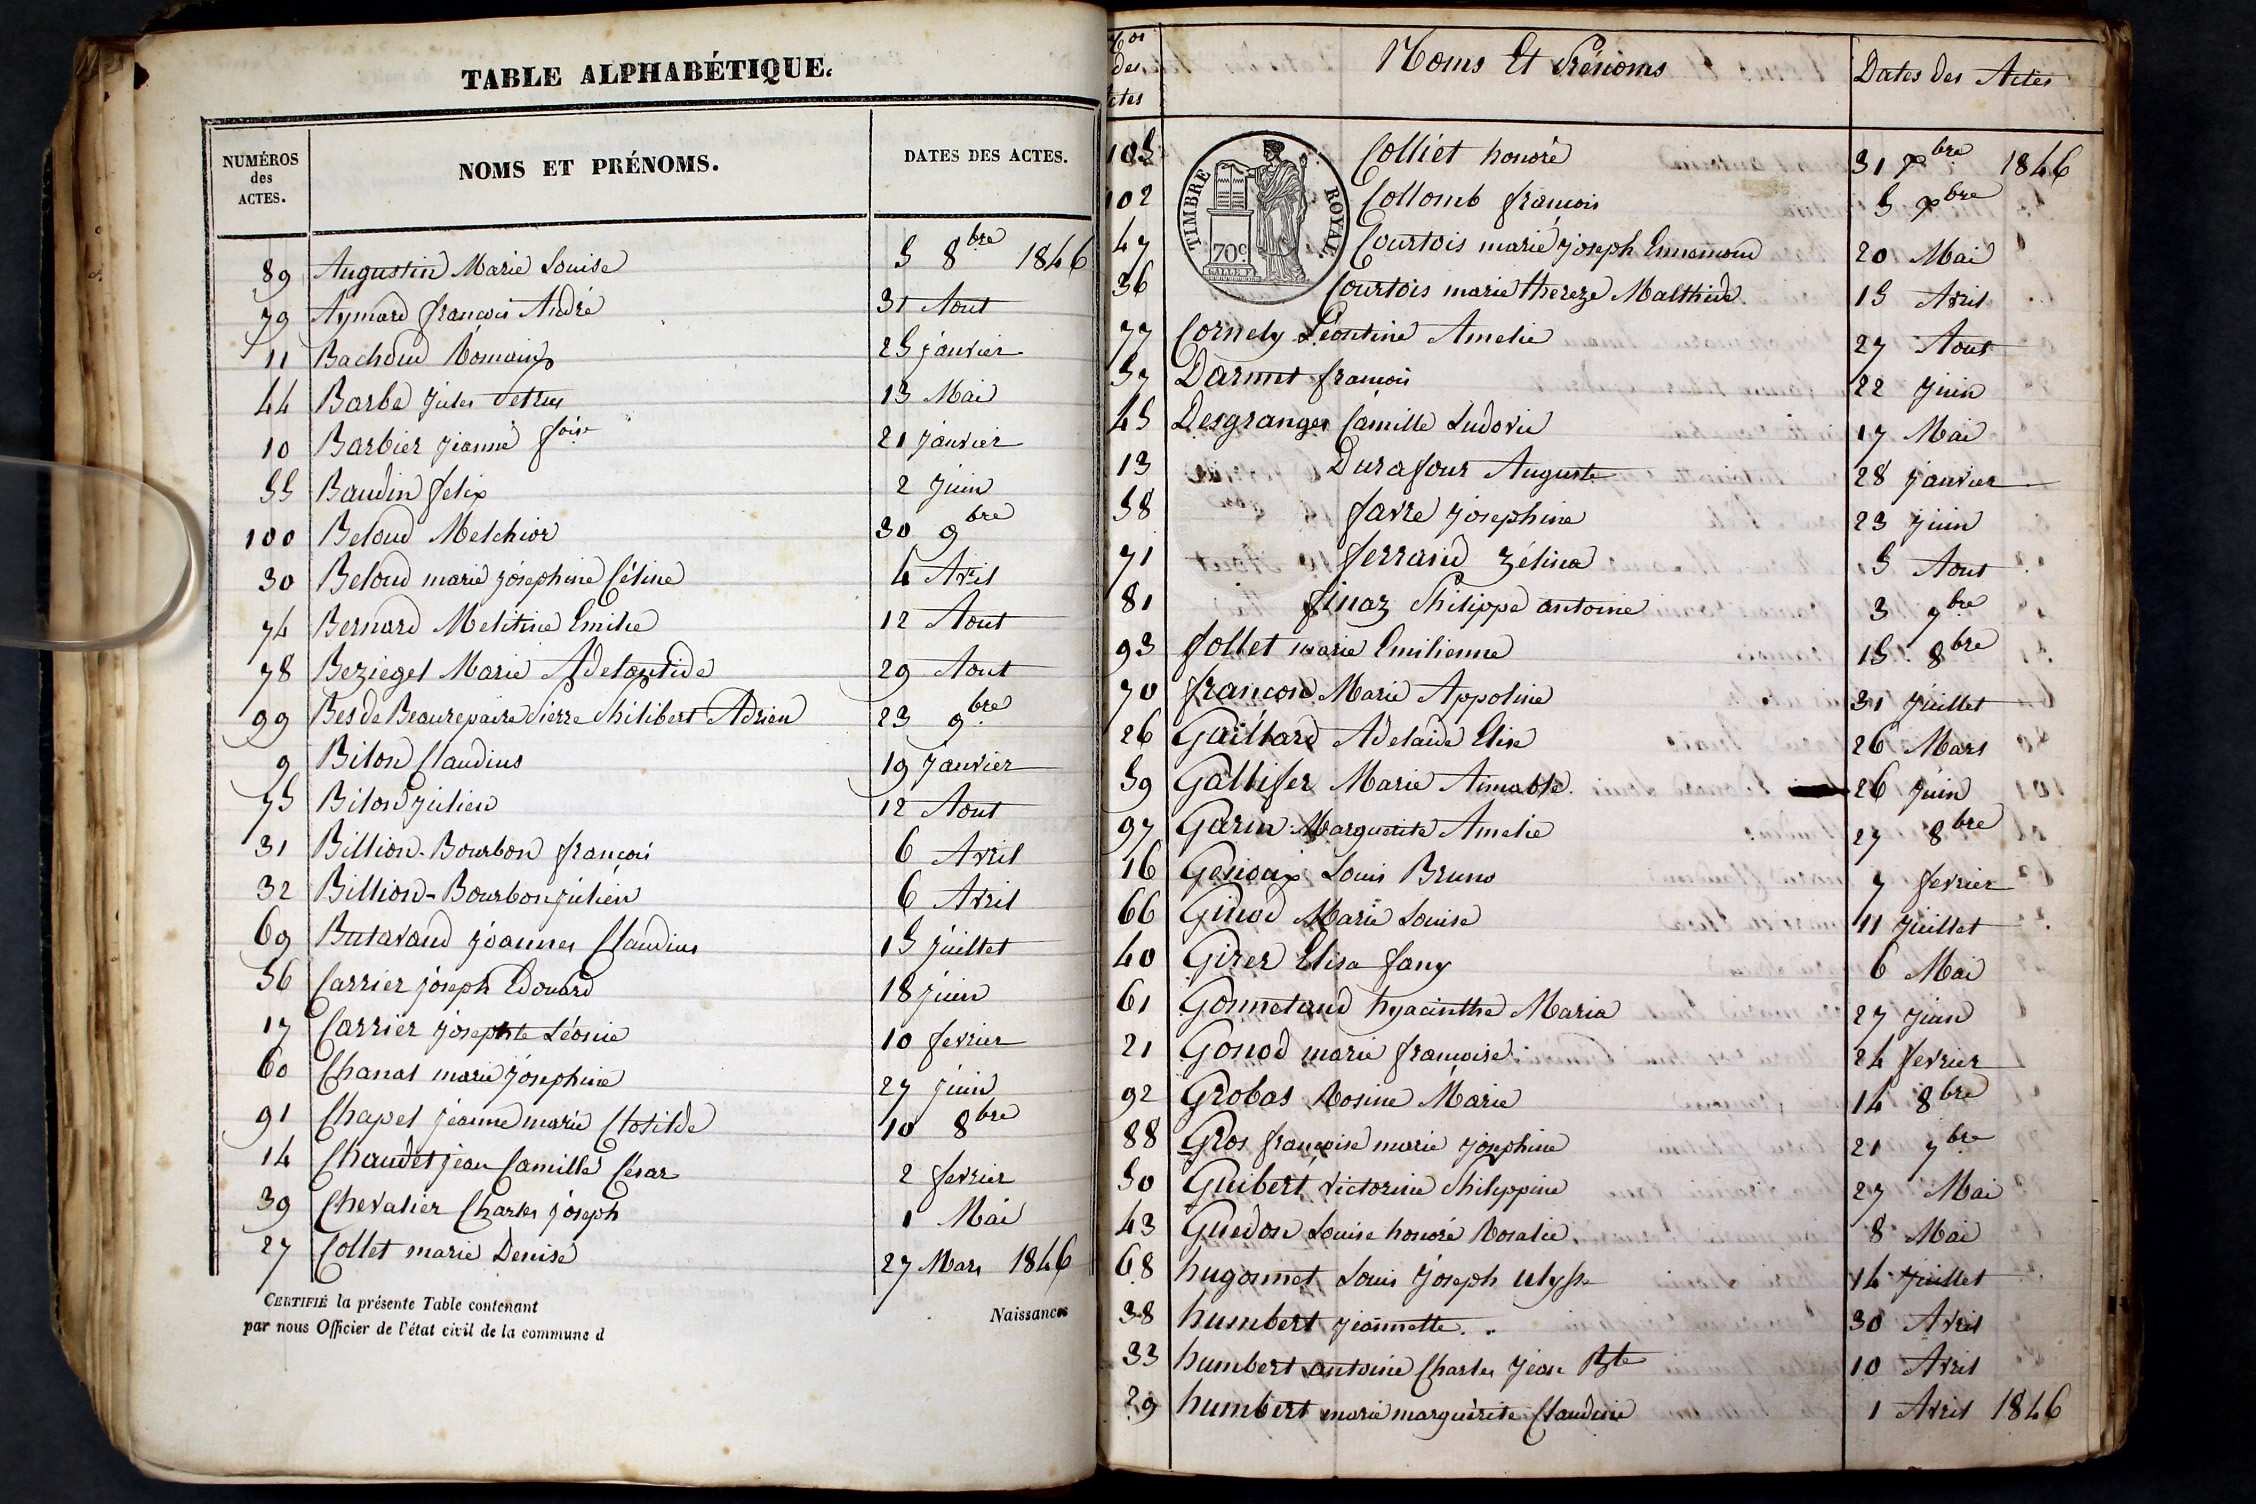 TABLE ALPHABÉTIQUE.
NUMÉROS des ACTES. NOMS ET PRÉNOMS. DATES DES ACTES.
89 Augustin Marie Louise 5 8bre 1846
79 Aymard françois André 31 Aout
11 Bachoud Romain 25 janvier
44 Barbe jules Petrus 13 Mai
10 Barbier jeanne foise 21 janvier
55 Baudin felix 2 juin
100 Beloud Melchior 30 9bre
30 Beloud marie joséphine Céline 4 Avril
74 Bernard Melitine Emilie 12 Aout
78 Marie 29 Aout
99 Bes de Beaurepaire Pierre Philibert Adrien 23 9bre
9 Bilon Claudius 19 janvier
75 Bilon julien 12 Aout
31 Billion-Bourbon françois 6 Avril
32 Billion-Bourbon julien 6 Avril
69 Butavand joannes Claudius 15 juillet
56 Carrier joseph Edouard 18 juin
17 Carrier josephte Léonie 10 fevrier
60 Chanal marie joséphine 27 juin
91 Chapel jeanne marie Clotilde 10 8bre
14 Chaudet jean Camille César 2 fevrier
39 Chevalier Charles joseph 1 Mai
27 Collet marie Denise 27 Mars 1846
CERTIFIÉ la présente Table contenant Naissances
par nous Officier de l'état civil de la commune d
Nos des Actes Noms Et Prénoms Dates des Actes
TIMBRE ROYAL.
70c
105 Colliet honoré 31 Xbre 1846
102 Collomb françois 5 Xbre
47 Courtois marie joseph Ennemond 20 Mai
36 Courtois marie thereze Malthide 15 Avril
77 Cornely Léontine Amelie 27 Aout
57 Darmet françois 22 juin
45 Desgranges Camille Ludovic 17 Mai
13 Durafour Auguste 28 janvier
58 favre josephine 23 juin
71 ferrand zélina 5 Aout
81 finaz Philippe antoine 3 7bre
93 follet marie Emilienne 15 8bre
70 françon Marie Appoline 31 juillet
26 Gaillard Adelaide Elise 26 Mars
59 Gallifer Marie Aimable. 26 juin
97 Garin Marguerite Amelie 27 8bre
16 Genoux Louis Bruno 7 fevrier
66 Ginod Marie Louise 11 juillet
40 Girer Elisa fany 6 Mai
61 Gonnetand hyacinthe Maria 27 juin
21 Gonod marie françoise 24 fevrier
92 Grobas Rosine Marie 14 8bre
88 Gros françoise marie josephine 21 7bre
50 Guibert victorine Philippine 27 Mai
43 Guedon Louise honoré Rosalie. 8 Mai
68 hugonnet Louis joseph ulysse 14 juillet
38 humbert jeannette. 30 Avril
33 humbert antoine Charles jean Bte 10 Avril
29 humbert marie marguerite Claudine 1 Avril 1846